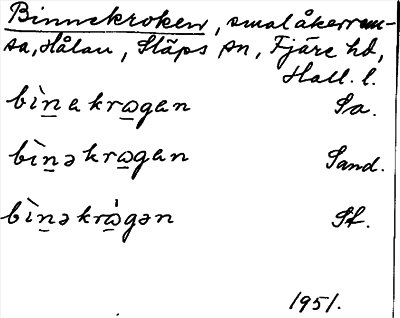 Binnekroken, smal åkerrem-
sa, Hålan, Släps sn, Fjäre hd,
Hall. l.
bìnakrogan Sa.
bìnəkrogan Sand.
bìnəkrògən Sf.
1951.